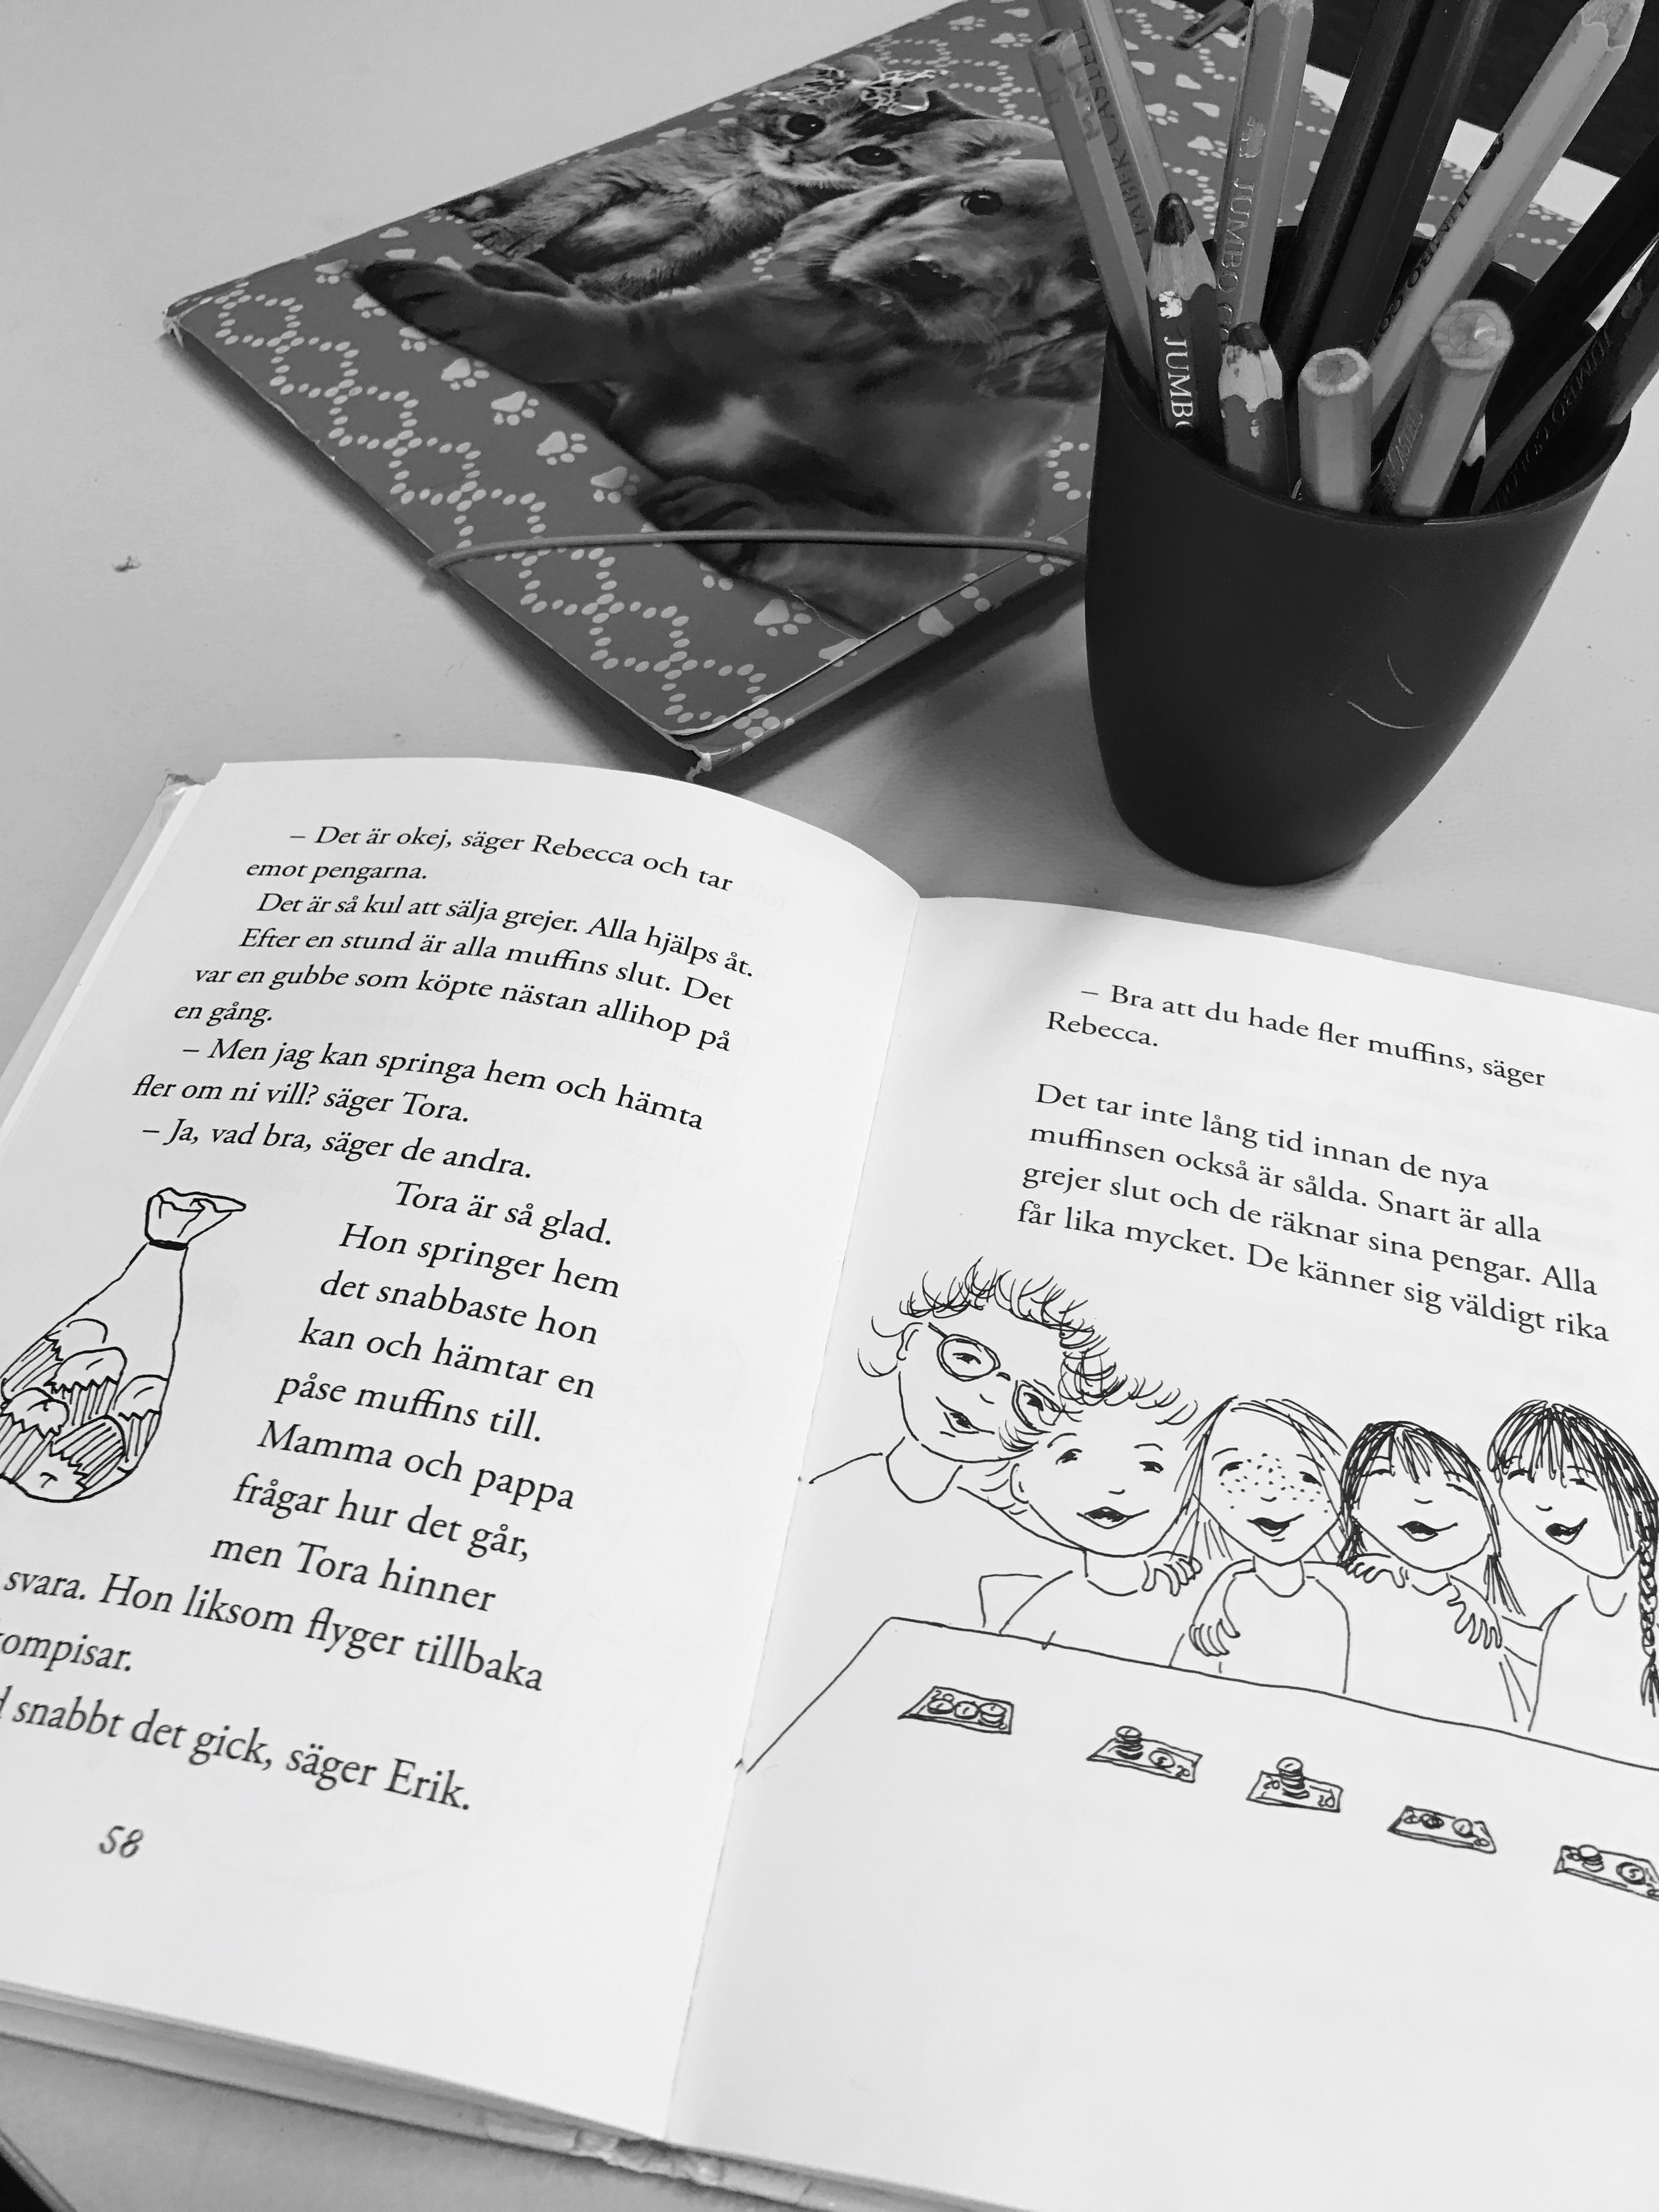 – Det är okej, säger Rebecca och tar
emot pengarna.
Det är så kul att sälja grejer. Alla hjälps åt.
Efter en stund är alla muffins slut. Det
var en gubbe som köpte nästan allihop på
en gång.
– Men jag kan springa hem och hämta
fler om ni vill? säger Tora.
– Ja, vad bra, säger de andra.
Tora är så glad.
Hon springer hem
det snabbaste hon
kan och hämtar en
påse muffins till.
Mamma och pappa
frågar hur det går,
men Tora hinner
svara. Hon liksom flyger tillbaka
snabbt det gick, säger Erik.
58
– Bra att du hade fler muffins, säger
Rebecca.
Det tar inte lång tid innan de nya
muffinsen också är sålda. Snart är alla
grejer slut och de räknar sina pengar. Alla
får lika mycket. De känner sig väldigt rika
JUMBO
JUMBO